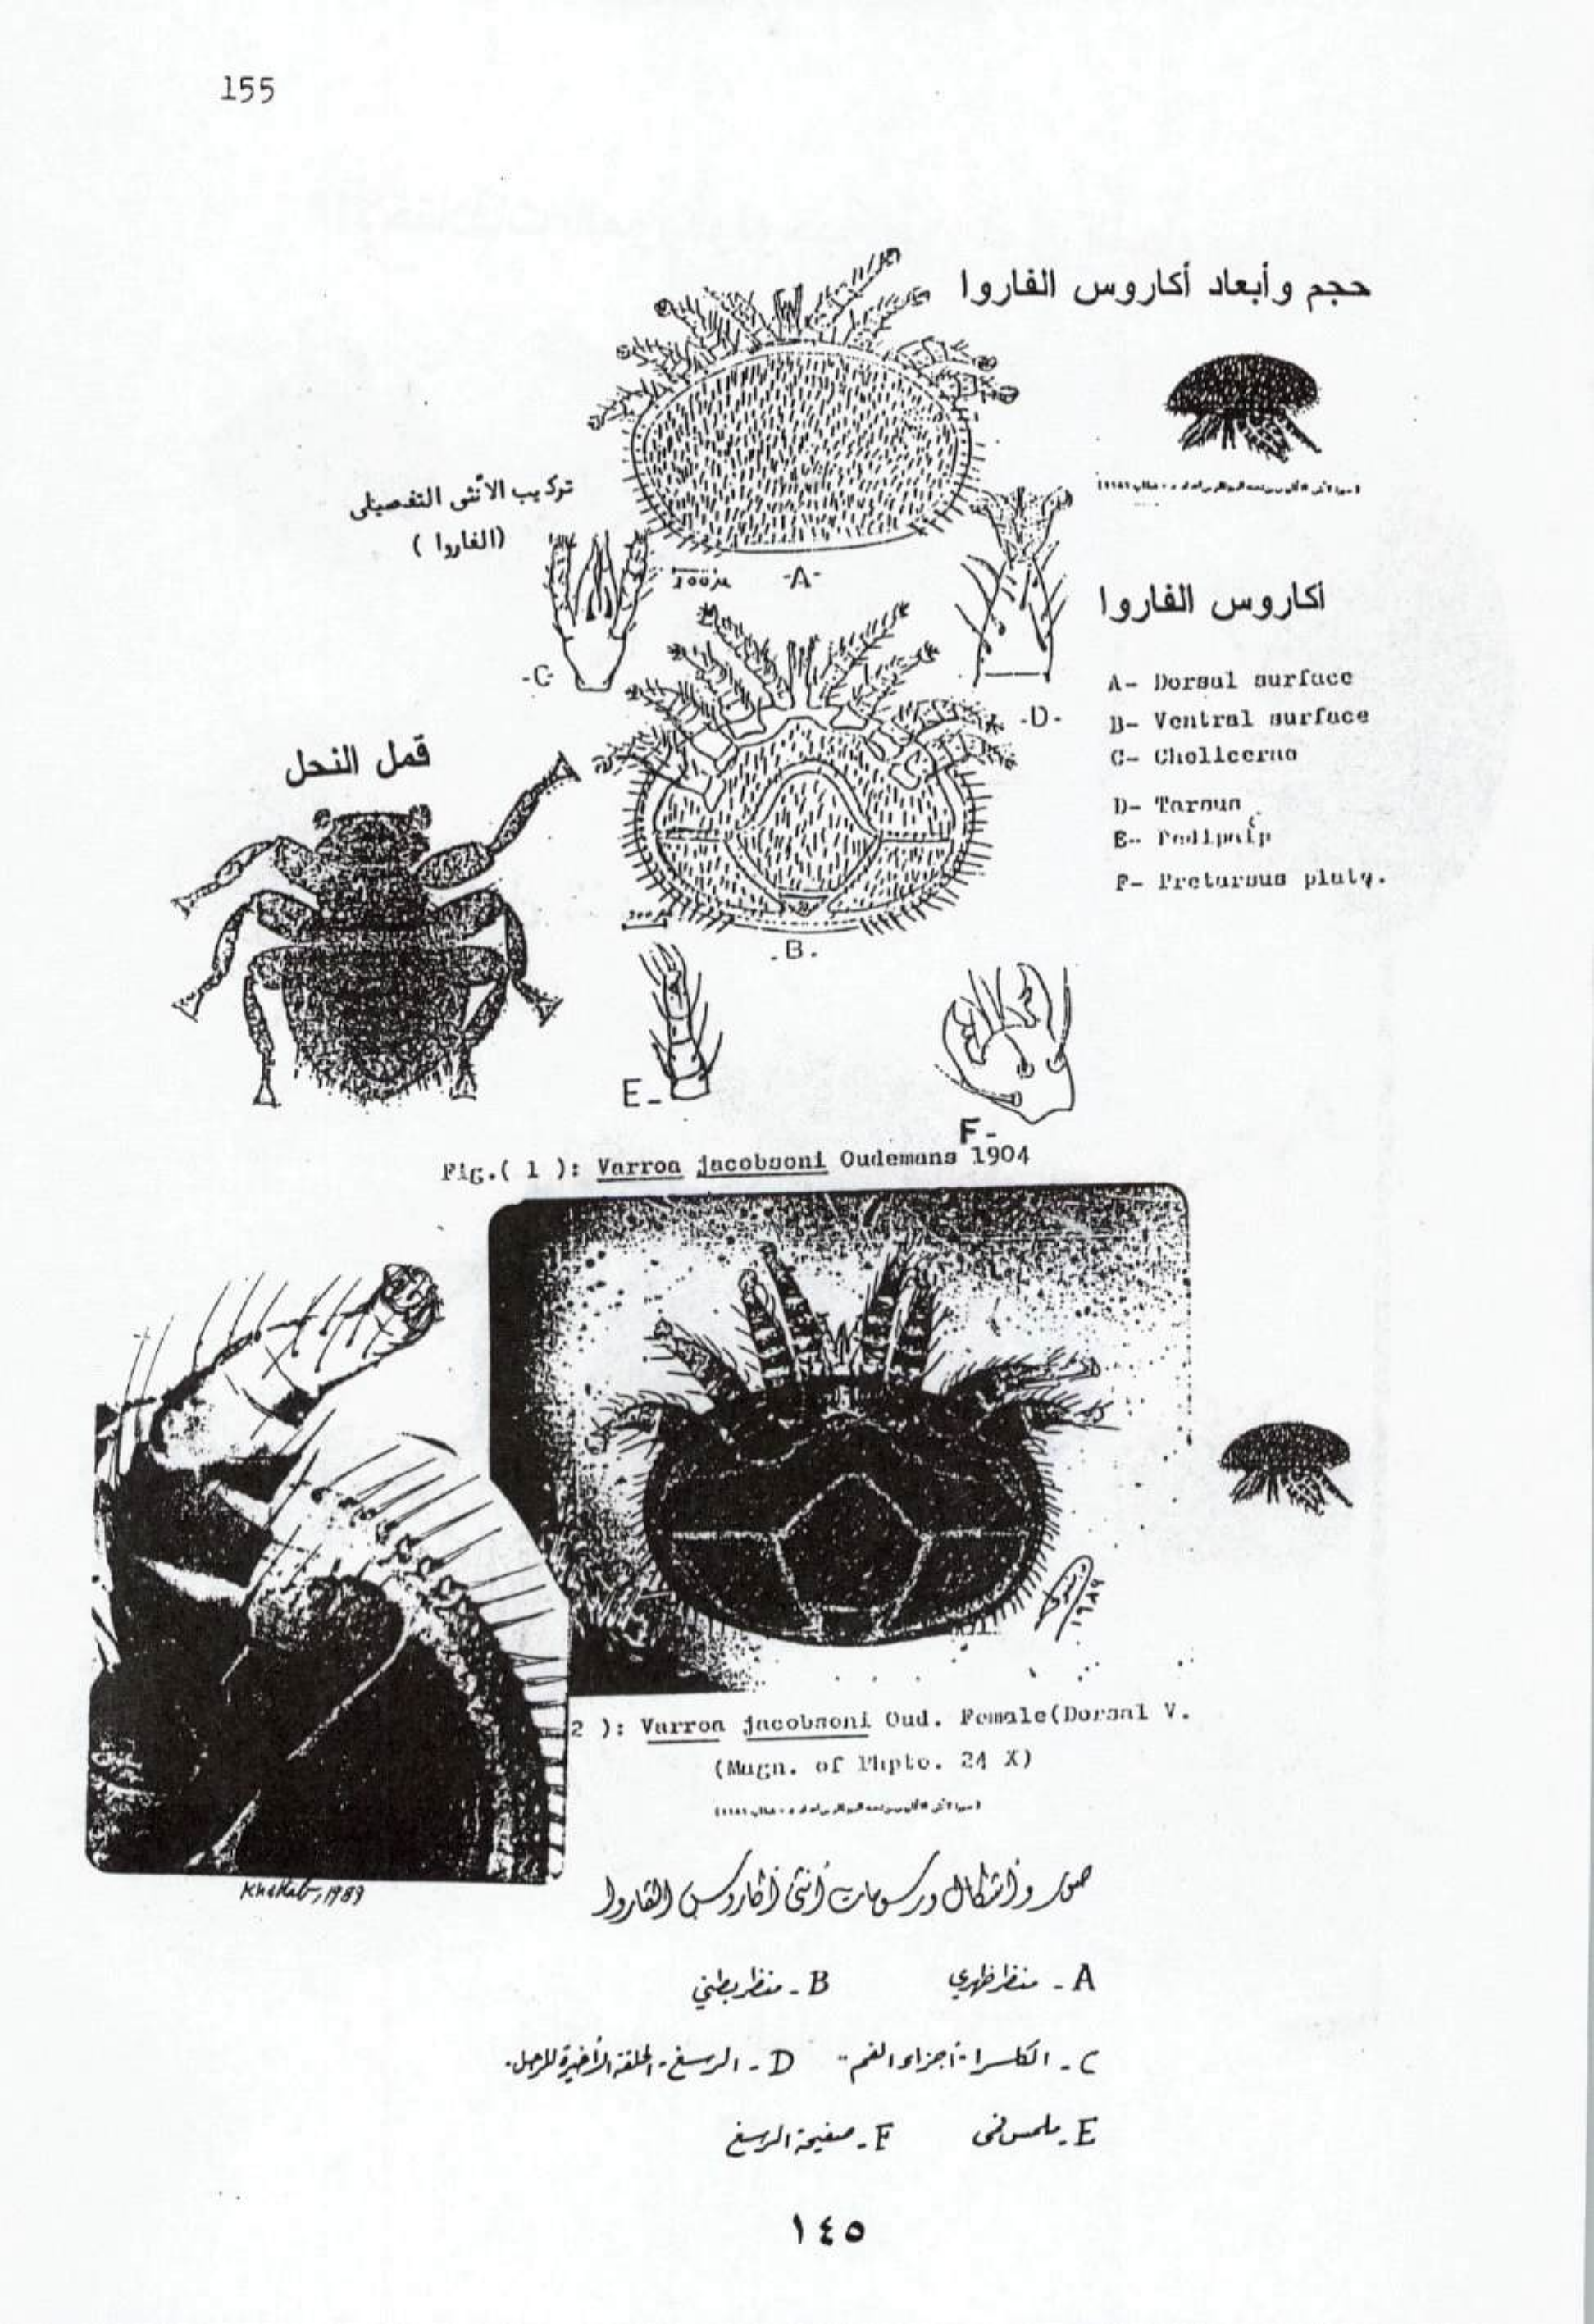 155
حجم وأبعاد أكاروس الفاروا
تركيب الأنثى التفصيلى
(الفاروا)
100 µ
-A-
-C-
-D-
أكاروس الفاروا
A- Dorsal surface
B- Ventral surface
C- Chelicerae
D- Tarsus
E- Pedipalp
F- Pretarsus
قمل النحل
-B-
E-
F-
Fig.( 1 ): Varroa jacobsoni Oudemans 1904
١٩٨٩
2 ): Varroa jacobsoni Oud. Female(Dorsal V.
(Magn. of Phpto. 24 X)
Khattab, 1989
صور وأشكال ورسومات أنثى أكاروس الفاروا
A - منظر ظهري B - منظر بطني
C - الكلسرا - أجزاء الفم - D - الرسغ - الحلقة الأخيرة للرجل.
E - ملمس فمى F - صفيحة الرسغ
١٤٥